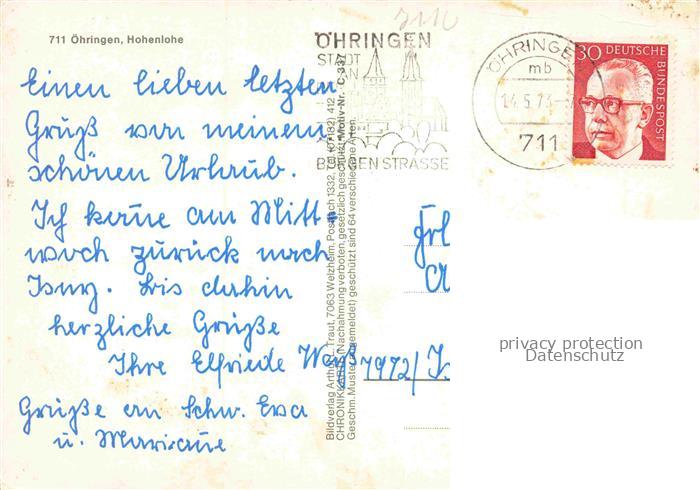 7110
711 Öhringen, Hohenlohe
ÖHRINGEN
STADT
AN
BURGENSTRASSE
ÖHRINGEN
mb
14.5.73
711
30 DEUTSCHE BUNDESPOST
Einen lieben letzten
Gruß von meinem
schönen Urlaub.
Ich komme am Mitt-
woch zurück nach
Isny. Bis dahin
herzliche Grüße
Ihre Elfriede
Grüße an Schw. Eva
u. Marianne
Frl
7972/ Is
Bildverlag Arthur Traut, 7063 Welzheim, Postfach 1332, Tel. (07182) 412
CHRONIKKARTE (Nachahmung verboten, gesetzlich geschützt) Motiv-Nr. C 337
Geschm. Muster (angemeldet) geschützt sind 64 verschiedene Arten.
privacy protection
Datenschutz